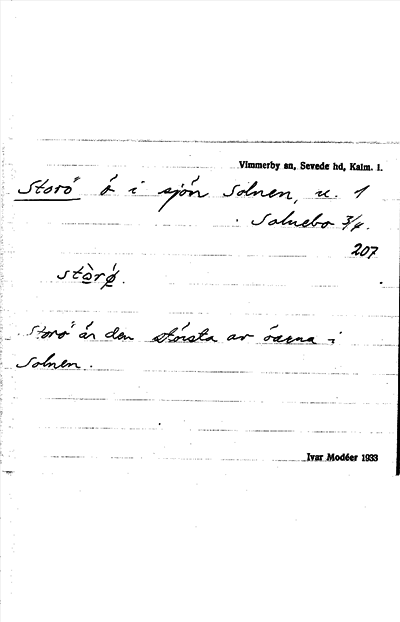 Vimmerby sn, Sevede hd, Kalm. l.
Storö ö i sjön Solnen, u. 1
Solnebo 3/4.
207
stò̲rǿ̲.
Storö är den största av öarna i
Solnen.
Ivar Modéer 1933